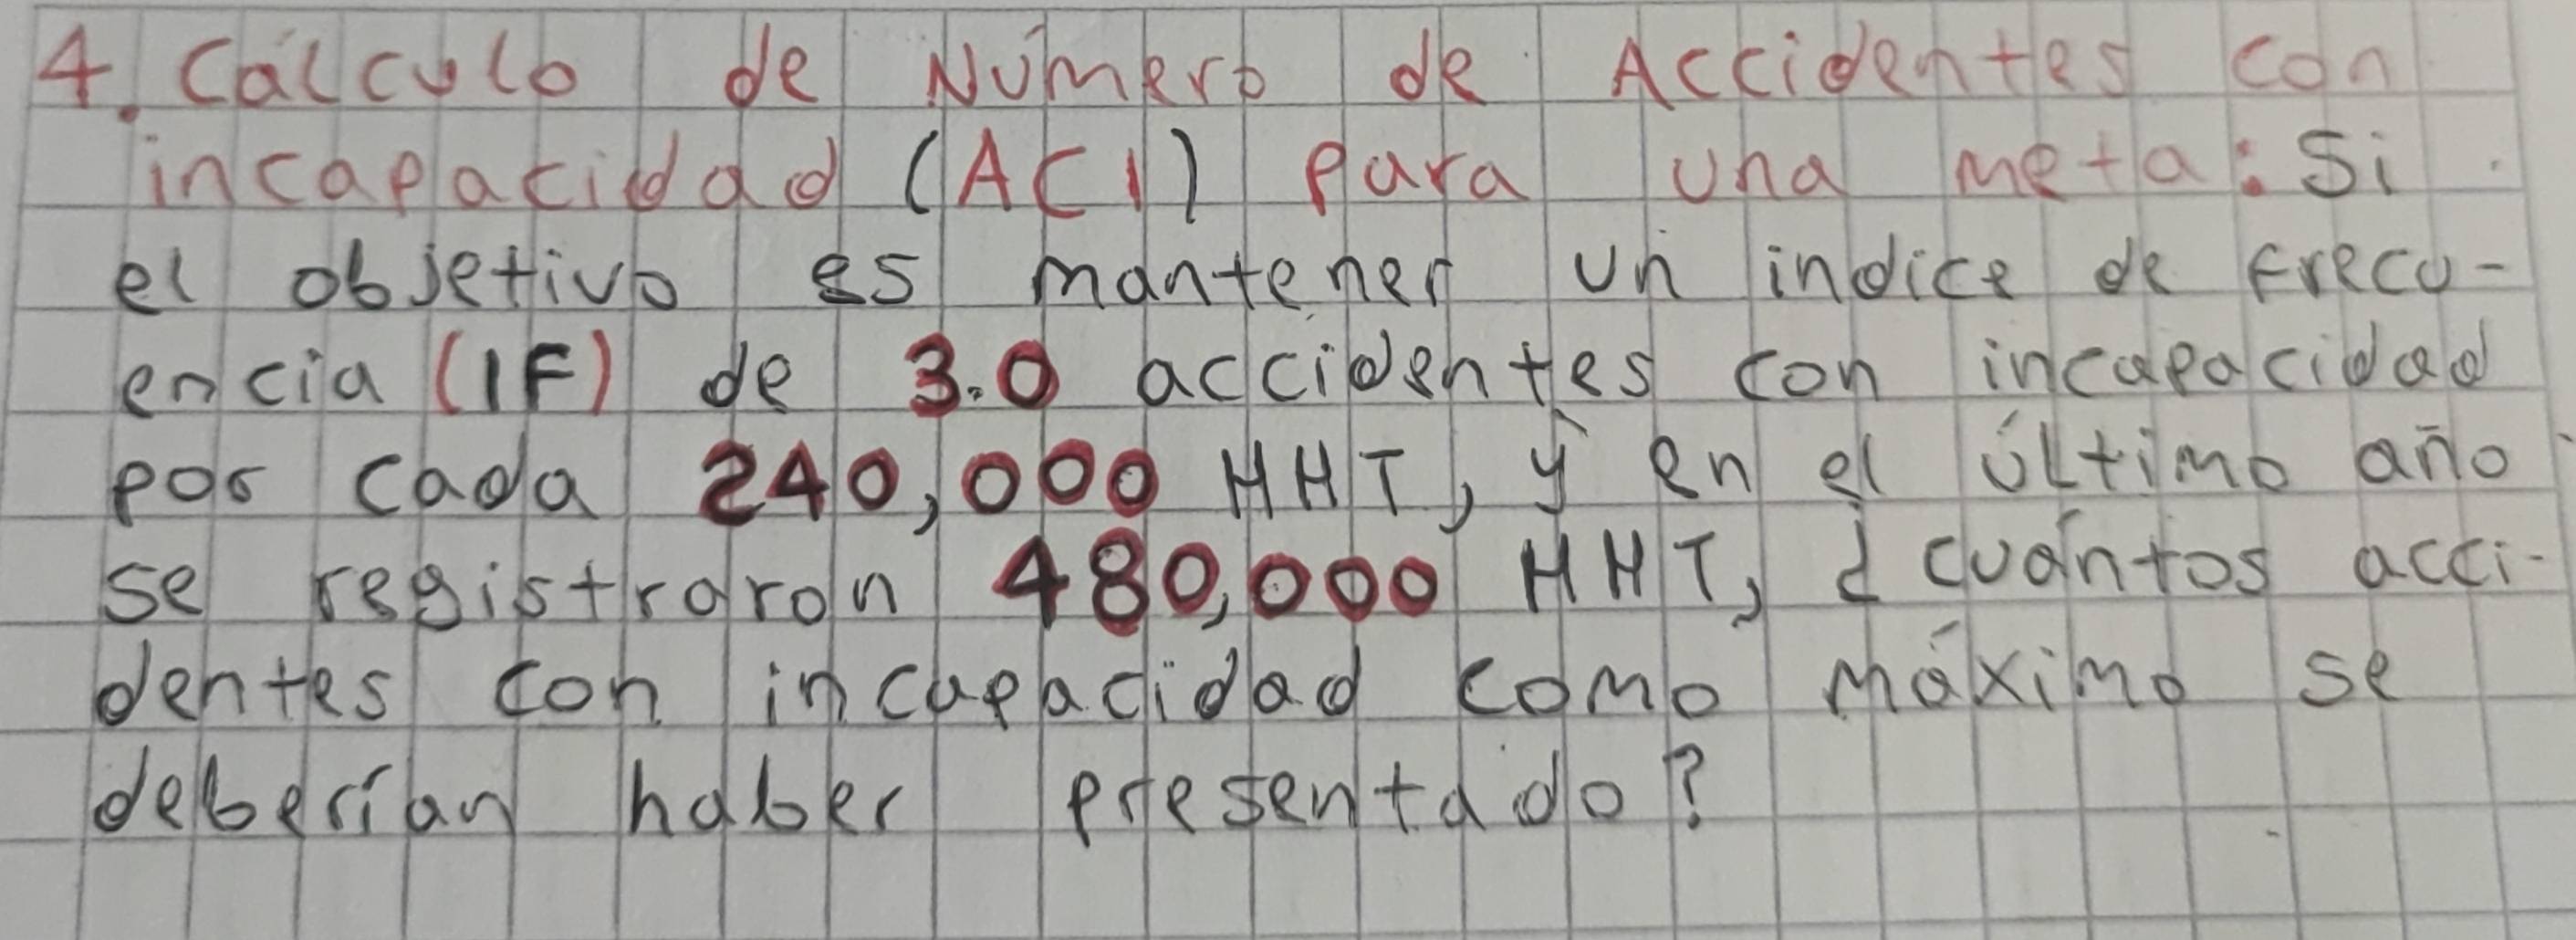 4. Cálculo de Número de Accidentes con
incapacidad (ACI) para una meta: Si
el objetivo es mantener un indice de frecu-
encia (IF) de 3.0 accidentes con incapacidad
por cada 240,000 HHT, y en el último año
se registraron 480,000 HHT, ¿cuántos acci-
dentes con incapacidad como máximo se
deberían haber presentado?